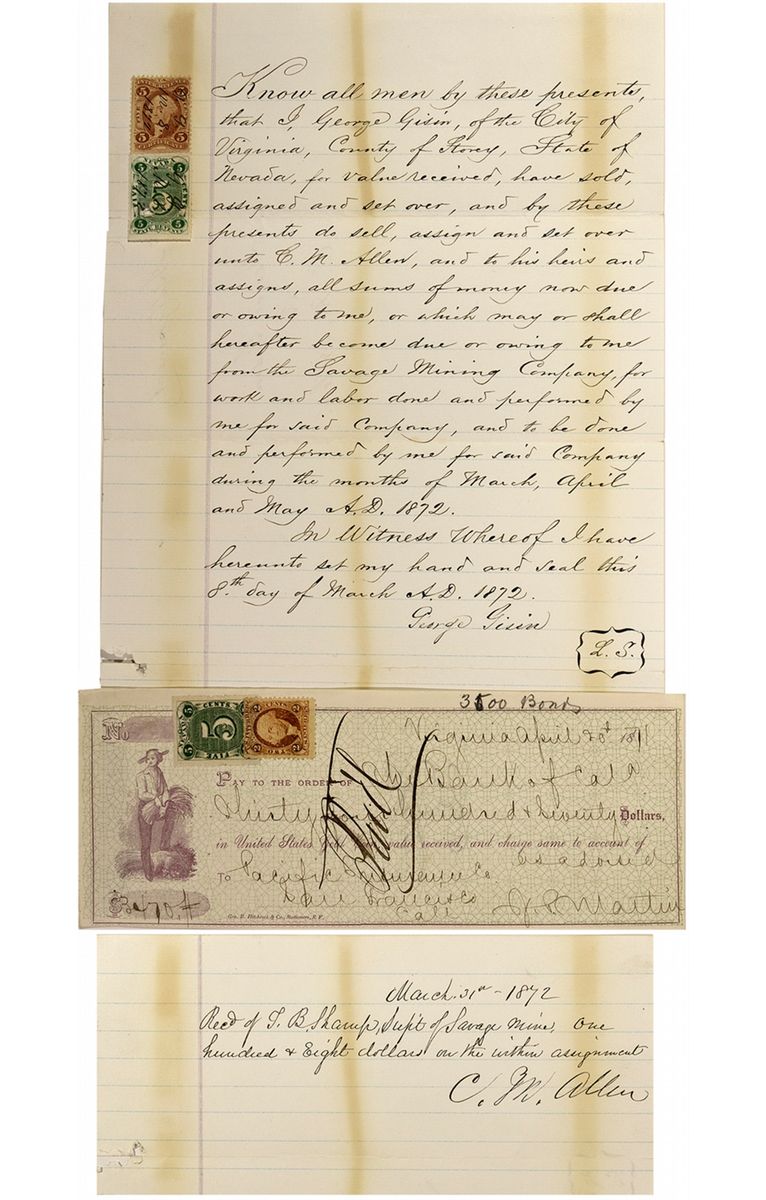 Know all men by these presents,
that I, George Gisin, of the City of
Virginia, County of Storey, State of
Nevada, for value received, have sold,
assigned and set over, and by these
presents do sell, assign and set over
unto C. M. Allen, and to his heirs and
assigns, all sums of money now due
or owing to me, or which may or shall
hereafter become due or owing to me
from the Savage Mining Company, for
work and labor done and performed by
me for said Company, and to be done
and performed by me for said Company
during the months of March, April
and May A.D. 1872.
In Witness Whereof I have
hereunto set my hand and seal this
8.th day of March A.D. 1872.
George Gisin
L. S.
3500 Bonds
No
5 CENTS 5
Virginia April 20th 1871
PAY TO THE ORDER OF The Bank of Cala
Thirty four hundred & Seventy Dollars,
in United States Gold value received, and charge same to account of
as advised
TO Pacific Insurance Co
San Francisco
Cal
$3470.
Paid
Martin
March 31st - 1872
Recd of T. B. Shamp, Supt of Savage mine, one
hundred & Eight dollars on the within assignment
C. M. Allen